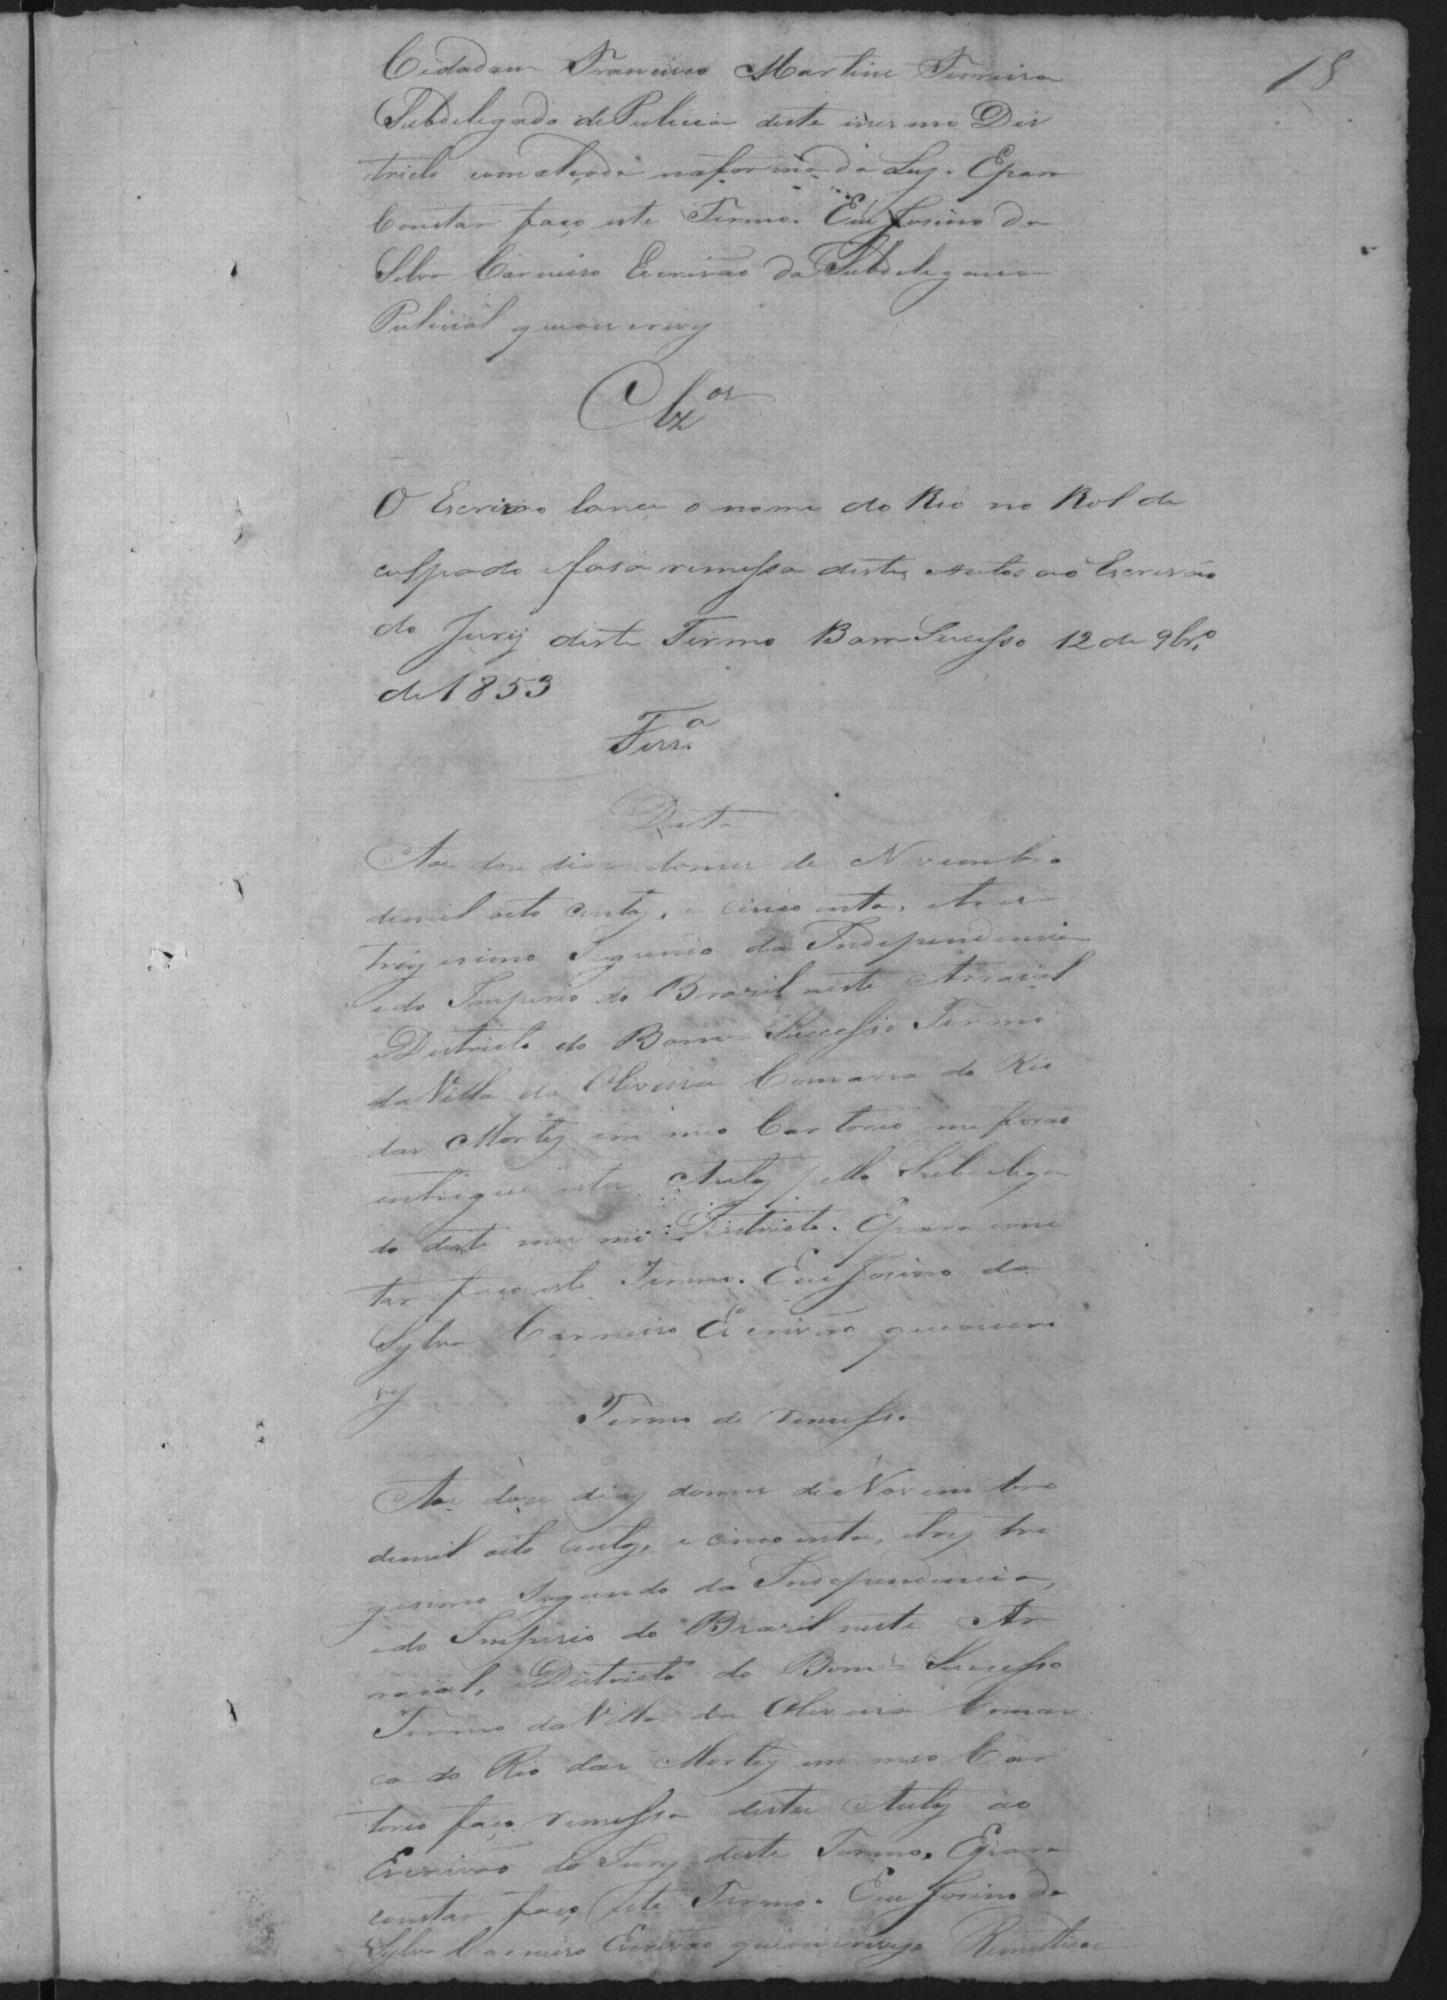 18
Cidadam Francisco Martins Ferreira
Subdelegado de Policia deste mesmo Dis
tricto com alçada na forma da Ley. Epara
Constar faço este Termo. Eu Josino da
Silva Carneiro Escrivão da Subdelegacia
Policial que oescrevy
Clz.os
O Escrivão lance o nome do Réo no Rol de
culpado e fasa remessa destes Autos ao Escrivão
do Jury deste Termo Bom Sucesso 12 de 9br.º
de 1853
Ferr.ª
Data
Aos doze dias domes de Novembro
demil oito centos, e cincoenta, etres
trigesimo Segundo da Independencia
edo Imperio do Brazil neste Arraial
Districto do Bom Successo Termo
da Villa da Oliveira Comarca do Rio
das Mortes em meo Cartorio me forão
entregue estes Autos pello Subdelega
do deste mesmo Districto. Epara cons
tar faço este Termo. Eu Josino da
Sylva Carneiro Escrivão que oescre
vy
Termo de remessa
Aos doze dias domes de Novembro
demil oito centos, e cincoenta, etres tri
gesimo Segundo da Independencia,
edo Imperio do Brazil neste Ar
raial, Districto do Bom Successo
Termo da Villa da Oliveira Comar
ca do Rio das Mortes em meo Car
torio faço remessa destes Autos ao
Escrivão do Jury deste Termo. Epara
constar faço este Termo. Eu Josino da
Sylva Carneiro Escrivão que oescrevy